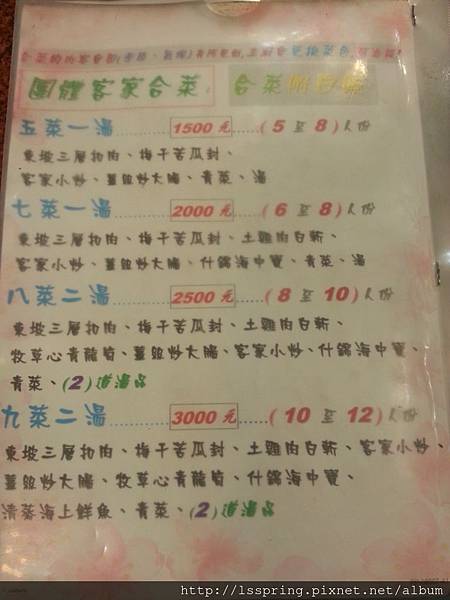 團體客家合菜
五菜一湯............1500 元.....( 5 至 8 ) 人份
東坡三層扣肉、梅干苦瓜封、
客家小炒、薑絲炒大腸、青菜、湯
七菜一湯............2000 元.....( 6 至 8 ) 人份
東坡三層扣肉、梅干苦瓜封、土雞肉白斬、
客家小炒、薑絲炒大腸、什錦海中寶、青菜、湯
八菜二湯............2500 元.....( 8 至 10 ) 人份
東坡三層扣肉、梅干苦瓜封、土雞肉白斬、
牧草心青龍筍、薑絲炒大腸、客家小炒、什錦海中寶、
青菜、(2)道湯品
九菜二湯............3000 元.....( 10 至 12 ) 人份
東坡三層扣肉、梅干苦瓜封、土雞肉白斬、客家小炒、
薑絲炒大腸、牧草心青龍筍、什錦海中寶、
清蒸海上鮮魚、青菜、(2)道湯品
http://lsspring.pixnet.net/album